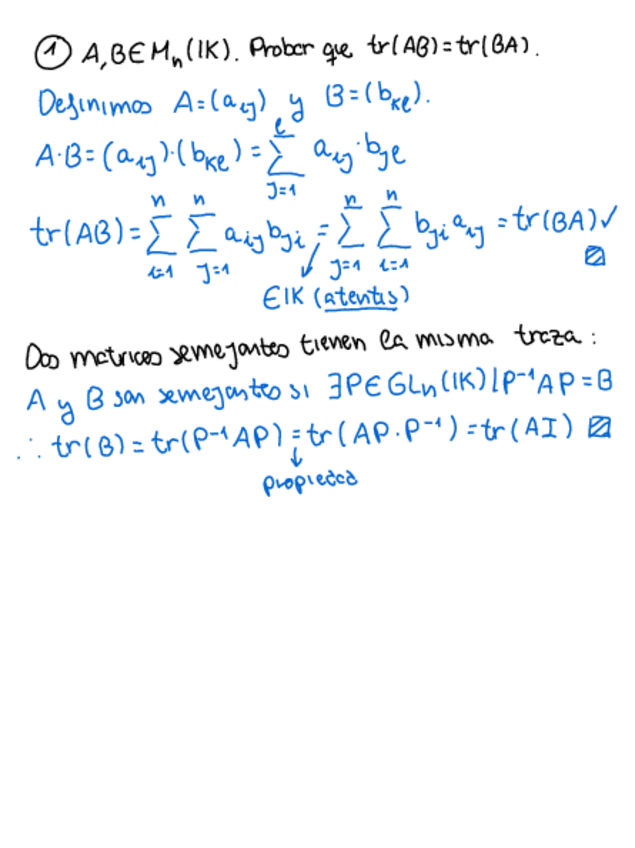 ① A,B∈Mₙ(IK). Probar que tr(AB)=tr(BA).
Definimos A=(aᵢⱼ) y B=(bₖₑ).
A·B=(aᵢⱼ)·(bₖₑ)=∑ⱼ₌₁ᵉ aᵢⱼ·bⱼₑ
tr(AB)=∑ᵢ₌₁ⁿ ∑ⱼ₌₁ⁿ aᵢⱼbⱼᵢ = ∑ⱼ₌₁ⁿ ∑ᵢ₌₁ⁿ bⱼᵢaᵢⱼ = tr(BA)✓
∈IK (atentis)
Dos matrices semejantes tienen la misma traza:
A y B son semejantes si ∃P∈GLₙ(IK)|P⁻¹AP=B
∴ tr(B)=tr(P⁻¹AP)=tr(AP·P⁻¹)=tr(AI) ▨
propiedad